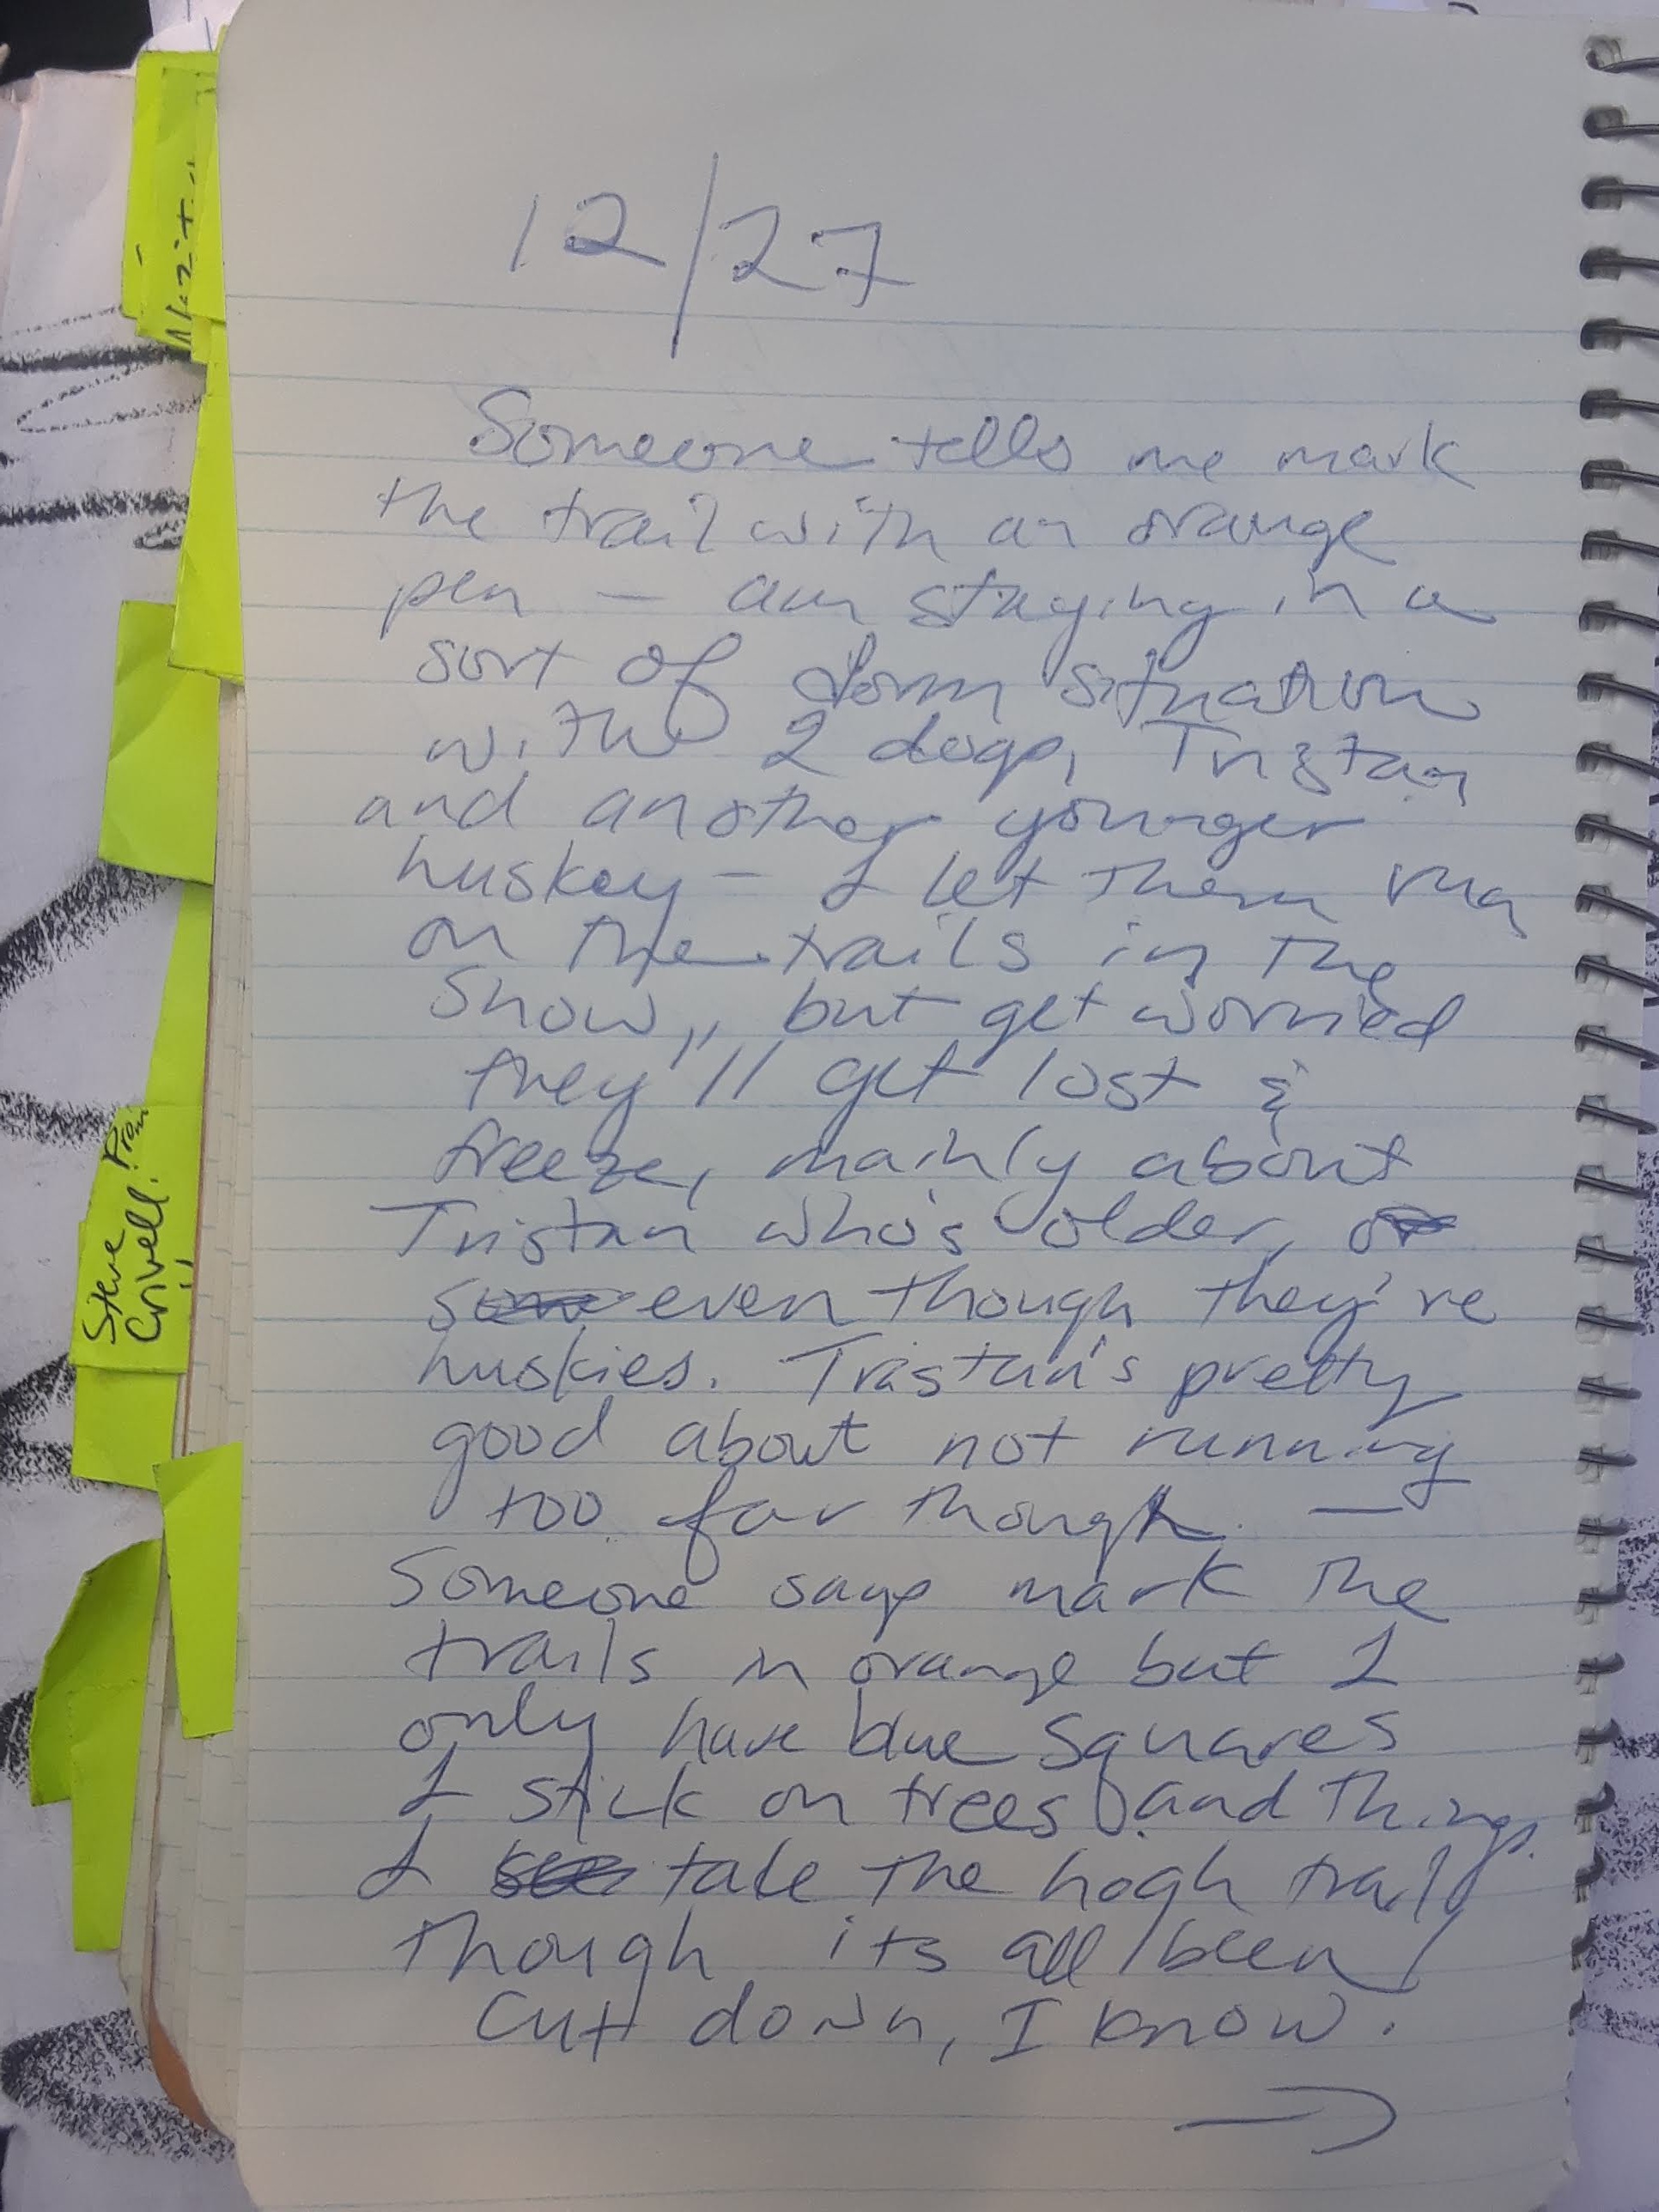 12/27
Someone tells me mark
the trail with an orange
pen — am staying in a
sort of dorm situation
with 2 dogs, Tristan
and another younger
huskey — I let them run
on the trails in the
snow, but get worried
they'll get lost &
freeze, mainly about
Tristan who's older, or
some even though they're
huskies. Tristan's pretty
good about not running
too far though. —
Someone says mark the
trails in orange but I
only have blue squares
I stick on trees and things.
I see take the high trail
though its all been
cut down, I know.
Steve
Crivell